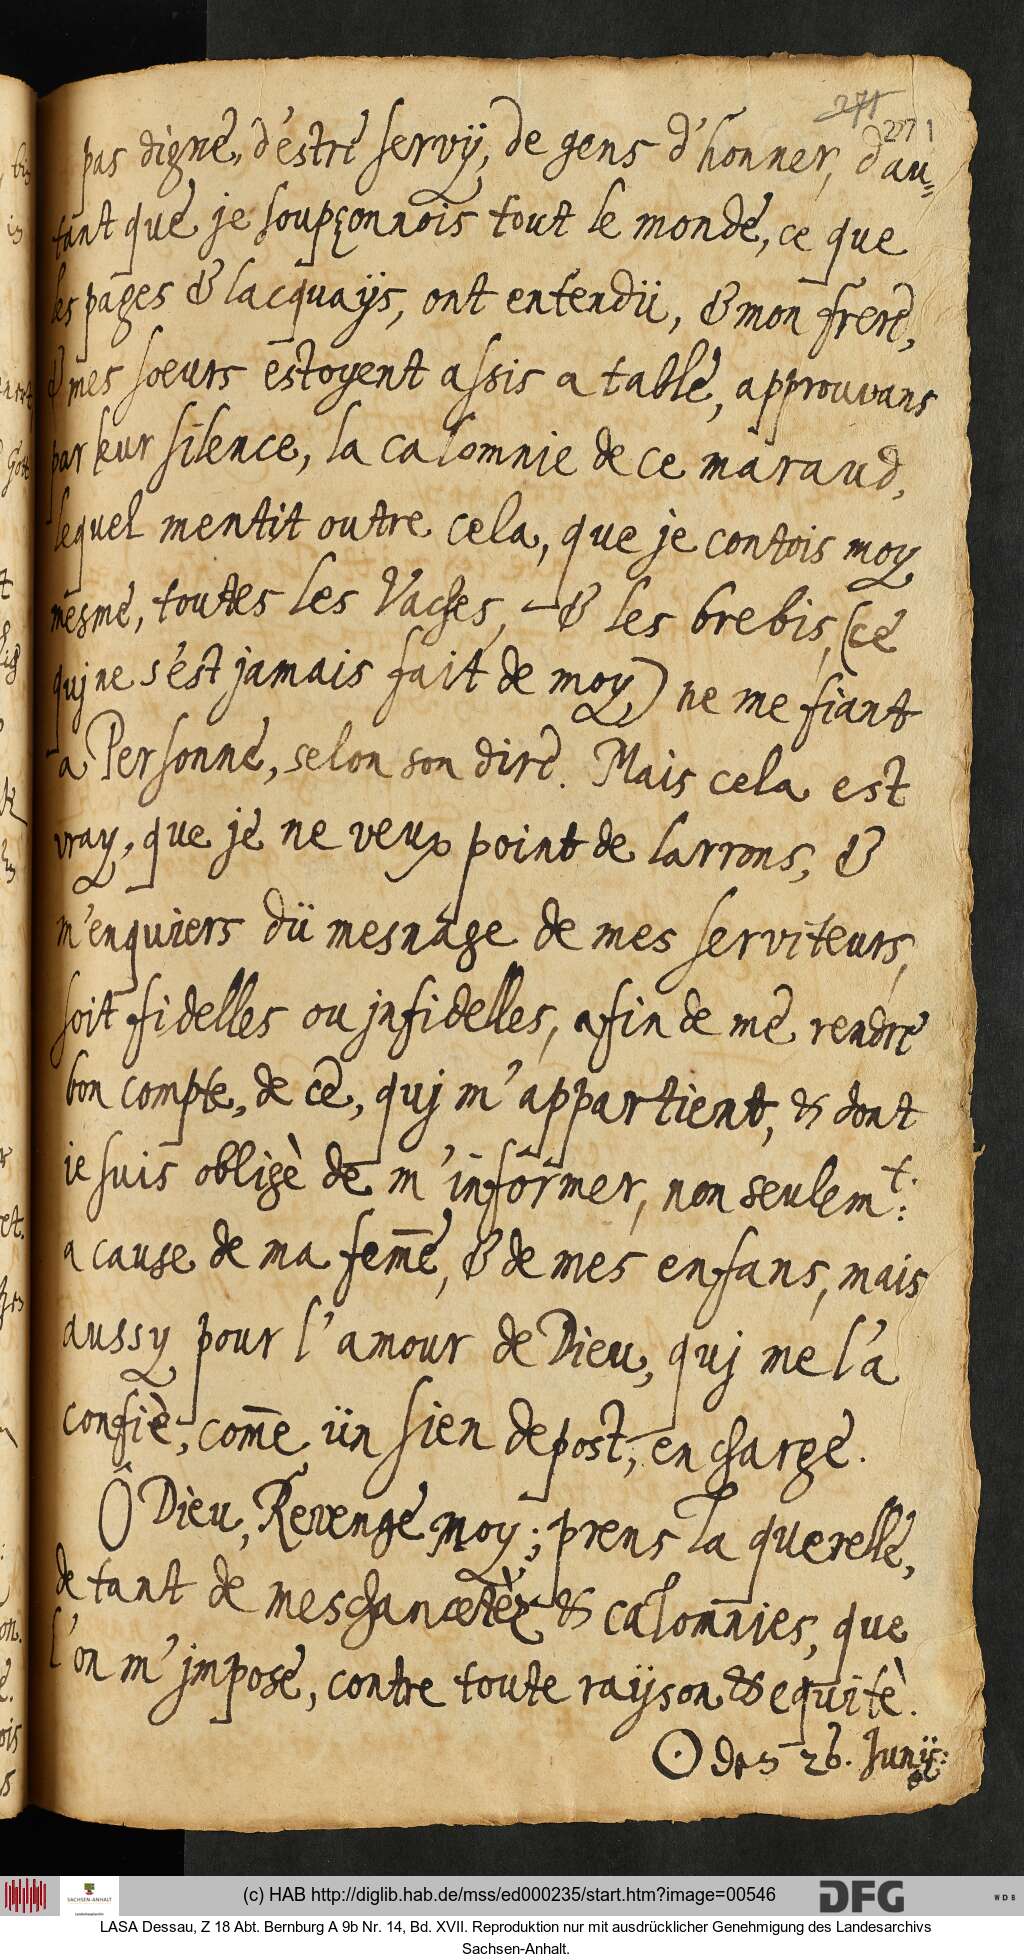 271
271
pas digne, d'estre servÿ, de gens d'honner, d'au-
tant que je soupçonnois tout le monde, ce que
les pages & lacquaÿs, ont entendü, & mon frere,
& mes soeurs estoyent assis a table, approuvans
par leur silence, la calomnie de ce maraud,
lequel mentit outre cela, que je contois moy
mesme, toutes les Vaches, & les brebis, (ce
quj ne s'est jamais fait de moy) ne me fiant
a Personne, selon son dire. Mais cela est
vray, que je ne veux point de larrons, &
m'enquiers dü mesnage de mes serviteurs,
soit fidelles ou jnfidelles, afin de me rendre
bon compte, de ce, quj m'appartient, & dont
ie suis obligè de m'informer, non seulem.t:
a cause de ma fem̄e, & de mes enfans, mais
aussy pour l'amour de Dieu, quj me l'a
confiè, com̄e ün sien depost, en charge.
Ô Dieu, Revenge moy; prens la querelle,
de tant de meschancetèz & calomnies, que
l'on m'jmpose, contre toute raÿson & equitè.
☉ den 26. Junÿ:
(c) HAB http://diglib.hab.de/mss/ed000235/start.htm?image=00546
SACHSEN-ANHALT
DFG
WDB
LASA Dessau, Z 18 Abt. Bernburg A 9b Nr. 14, Bd. XVII. Reproduktion nur mit ausdrücklicher Genehmigung des Landesarchivs
Sachsen-Anhalt.